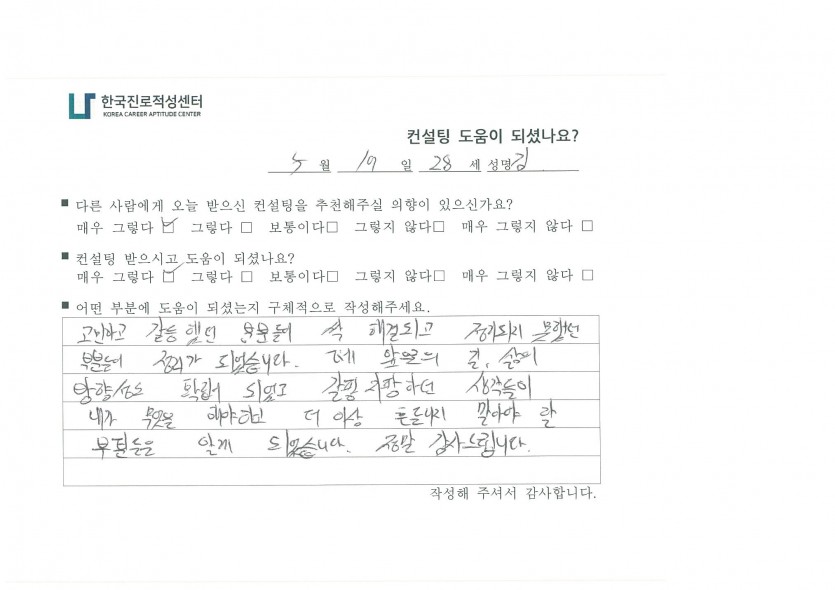 한국진로적성센터
KOREA CAREER APTITUDE CENTER
컨설팅 도움이 되셨나요?
5 월 19 일 28 세 성명 김
■ 다른 사람에게 오늘 받으신 컨설팅을 추천해주실 의향이 있으신가요?
매우 그렇다 ☑ 그렇다 □ 보통이다□ 그렇지 않다□ 매우 그렇지 않다 □
■ 컨설팅 받으시고 도움이 되셨나요?
매우 그렇다 ☑ 그렇다 □ 보통이다□ 그렇지 않다□ 매우 그렇지 않다 □
■ 어떤 부분에 도움이 되셨는지 구체적으로 작성해주세요.
고민하고 갈등 했던 부분들이 싹 해결되고 정리되지 못했던
부분들이 정리가 되었습니다. 앞으로의 길, 삶의
방향성도 확립이 되었고 갈팡 지팡하던 생각들이
내가 무엇을 해야하고 더 이상 흔들리지 말아야 할
부분들을 알게 되었습니다. 정말 감사드립니다.
작성해 주셔서 감사합니다.